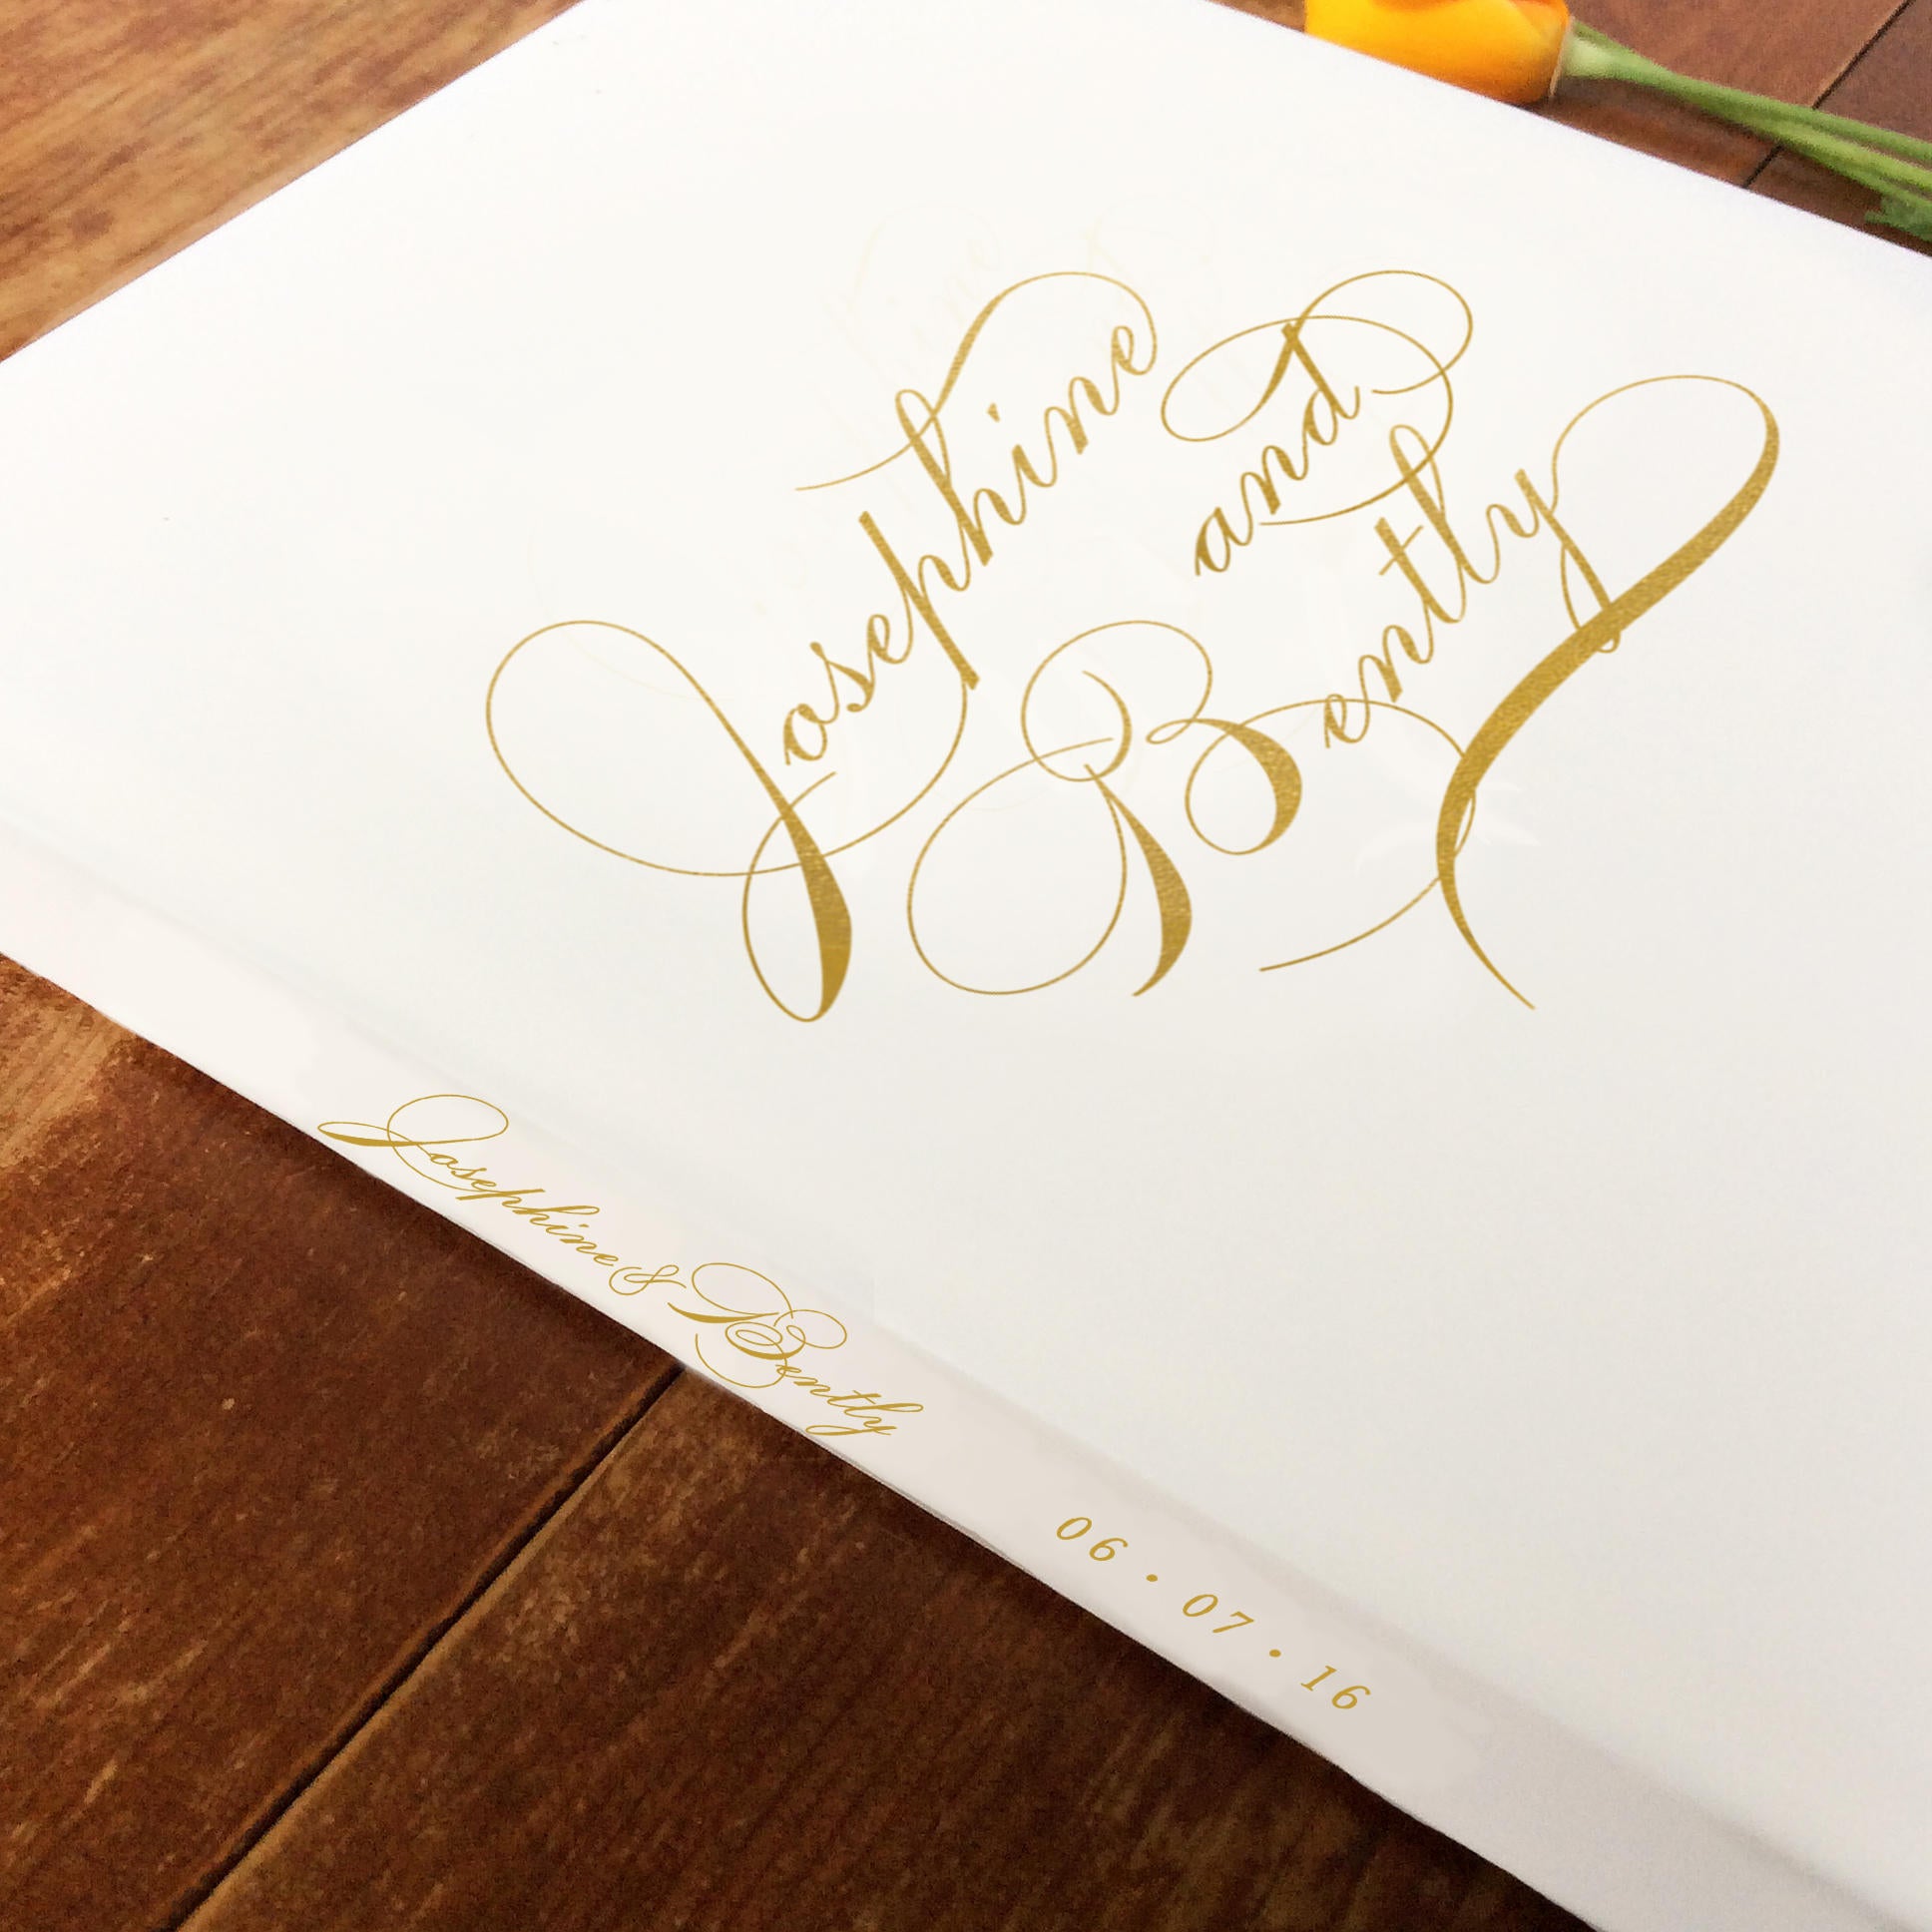 Josephine
and
Bently
Josephine & Bently
06 • 07 • 16